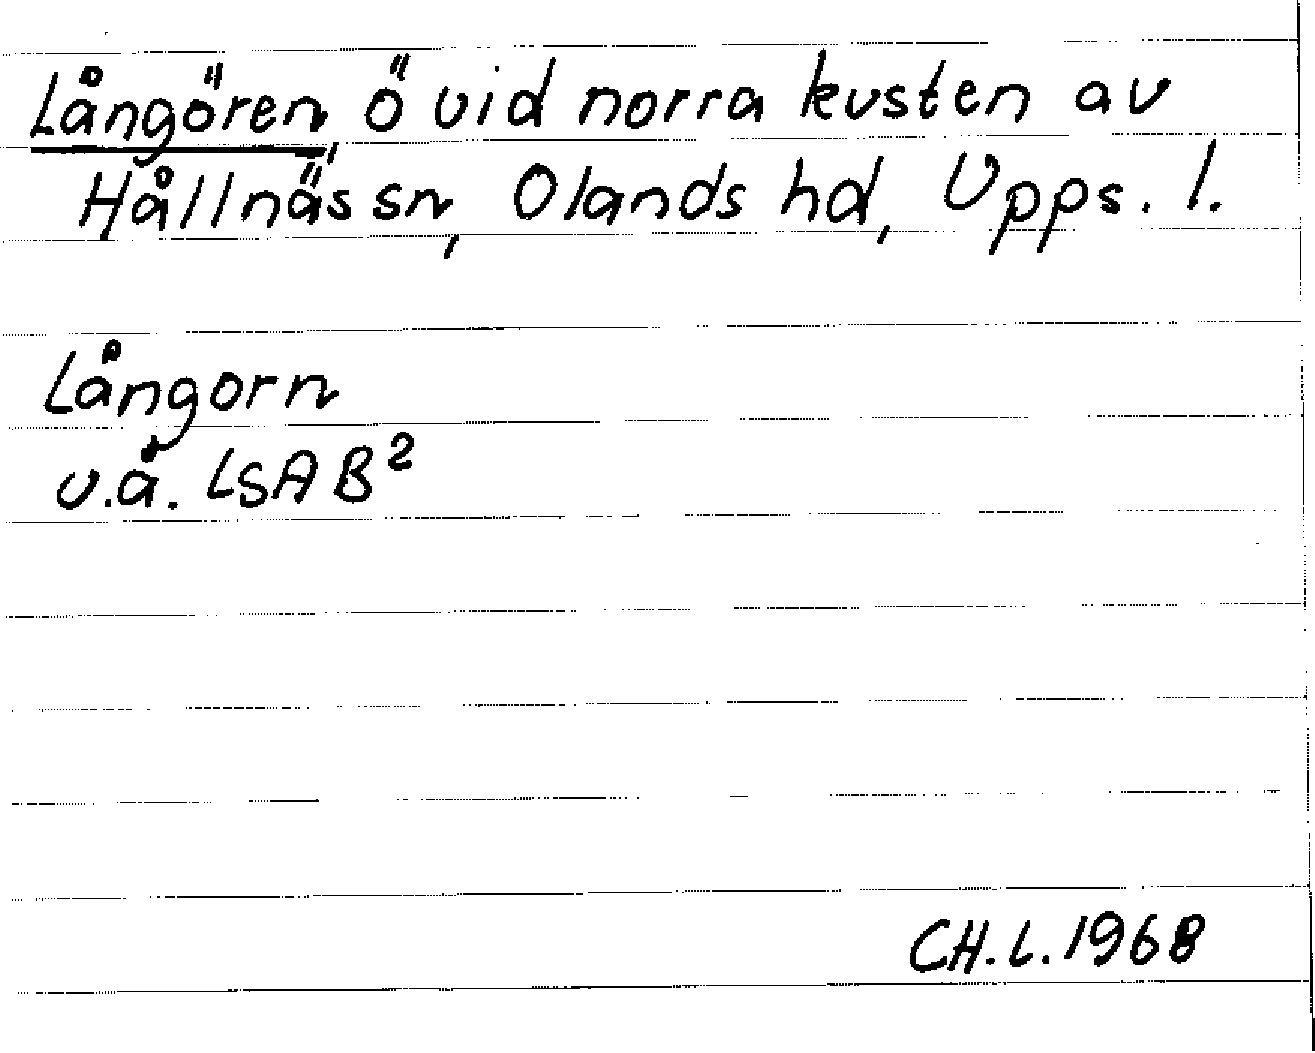 Långören, ö vid norra kusten av
Hållnäs sn, Olands hd, Upps. l.
Långorn
u.å. LSA B²
CH.L.1968